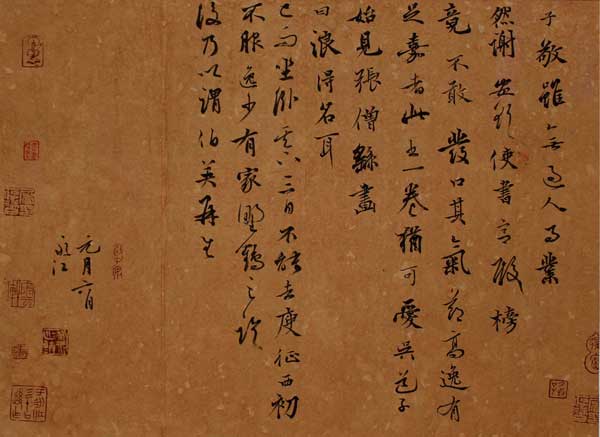 子敬雖無過人事業
然謝安欲使書宫殿榜
竟不敢發口其氣節高逸有
足嘉者此書一卷猶可愛吳道子
始見張僧繇畫
曰浪得名耳
已而坐卧其下三日不能去庾征西初
不服逸少有家雞野鶴之論
後乃以謂伯英再生
元月